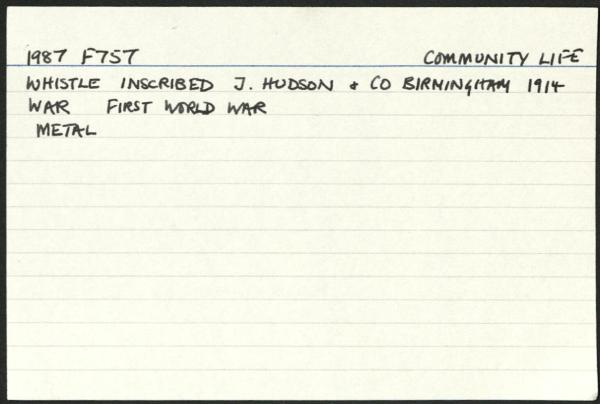 1987 F757 COMMUNITY LIFE
WHISTLE INSCRIBED J. HUDSON & CO BIRMINGHAM 1914
WAR FIRST WORLD WAR
METAL